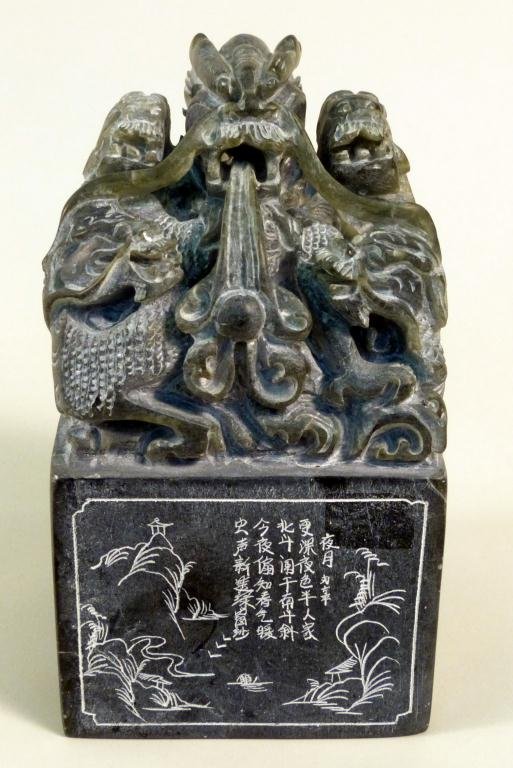 夜月
更深夜色半人家
北斗阑干南斗斜
今夜偏知春气暖
虫声新透绿窗纱